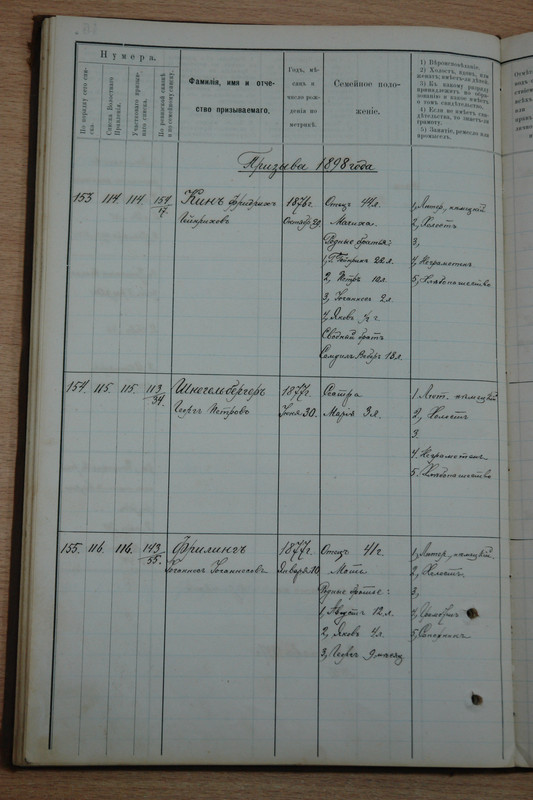 Нумера.
По порядку сего списка
Списка Волостнаго Правленія.
Участковаго призывнаго списка.
По ревизской сказкѣ и по семейному списку.
Фамилія, имя и отчество призываемаго.
Годъ, мѣсяцъ и число рожденія по метрикѣ.
Семейное положеніе.
1) Вѣроисповѣданіе.
2) Холостъ, вдовъ, или женатъ; имѣетъ-ли дѣтей.
3) Къ какому разряду принадлежитъ по образованію и какое имѣетъ о томъ свидѣтельство.
4) Если не имѣетъ свидѣтельства, то знаетъ-ли грамоту.
5) Занятіе, ремесло или промыселъ.
Призыва 1898 года
153 114 114 154/17.
Кинъ Фридрихъ
Гейнриховъ
1876г.
Октября 29.
Отецъ 44л.
Мачиха.
Родные братья:
1, Гейнрихъ 22 л.
2, Петръ 10л.
3, Іоганнесъ 2л.
4, Яковъ ½ г
Сводный братъ
Самуилъ Веберъ 18л.
1, Лютер, нѣмецкій
2, Холостъ
3,
4, Неграмотенъ
5, Хлѣбопашество
154. 115. 115. 113/34.
Шнегельбергеръ
Георгъ Петровъ
1877г.
Іюня 30.
Сестра
Марія 9л.
1. Лют. нѣмецкій
2, Холостъ
3.
4. Неграмотенъ
5. Хлѣбопашество
155. 116. 116. 143/55.
Фрилингъ
Іоганнесъ Іоганнесовъ
1877г.
Января 10.
Отецъ 41г.
Мать
Родные братья:
1, Августъ 12 л.
2, Яковъ 4л.
3, Георгъ 9 месяц
1, Лютер, нѣмецкій
2, Холостъ.
3,
4,
5, Сапожникъ